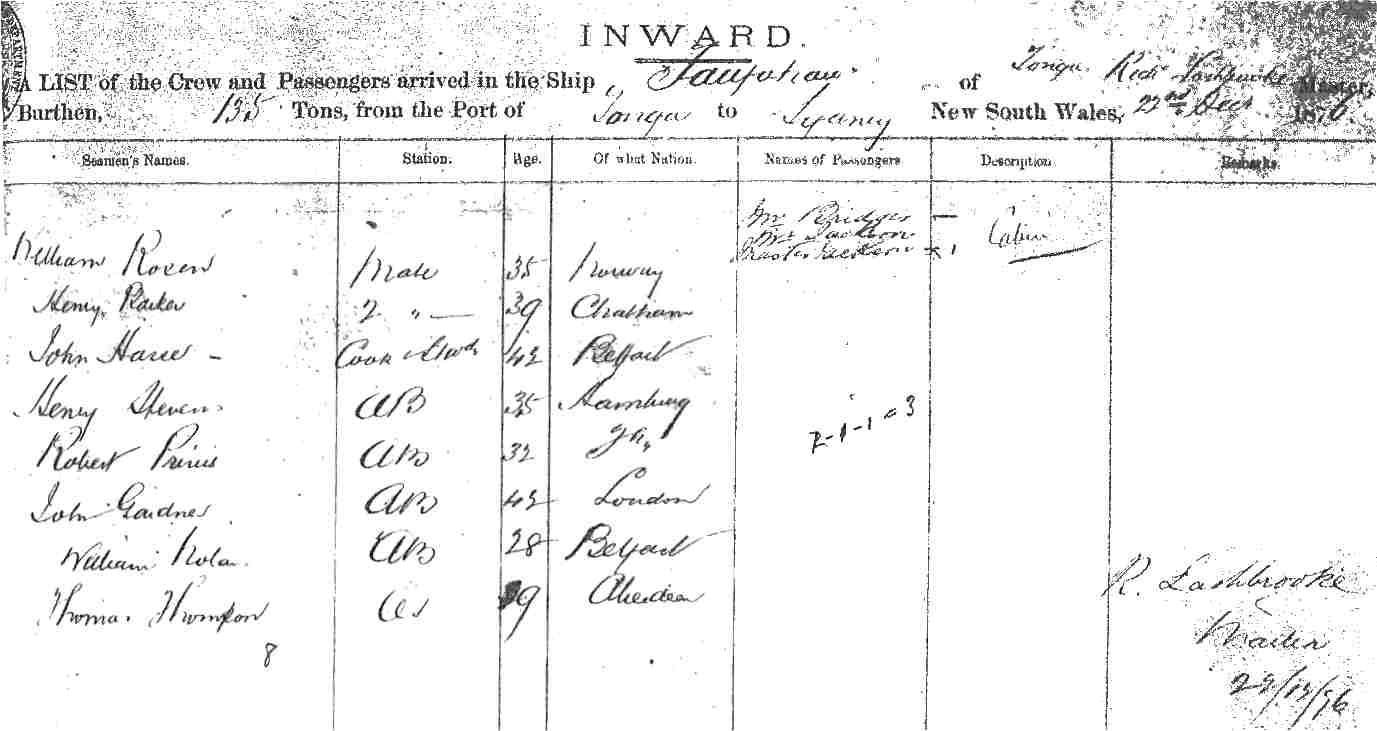 INWARD.
A LIST of the Crew and Passengers arrived in the Ship of Tonga Lashbrooke Master,
Burthen, 135 Tons, from the Port of Tonga to Sydney New South Wales, 22nd Decr 1876.
Seamen's Names. Station. Age. Of what Nation. Names of Passengers Description Remarks.
Mr Bridges — Cabin
Mrs Jackson
Master Jackson 1
William Rosen Mate 35 Norway
Henry Parker 2 „ — 39 Chatham
John - Cook & Stwd 42 Belfast
Henry Stevens 35 Hamburg
AB
Robert AB 32
2-1-1=3
John Gardner AB 42 London
William Nolan AB 28 Belfast
Thomas Thompson 9 Aberdeen
8
R. Lashbrooke
Master
22/12/76